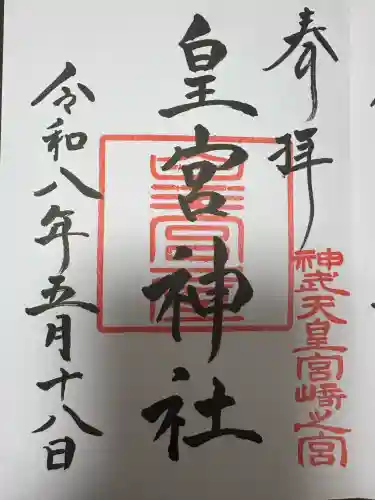 奉拝
神武天皇宮崎之宮
皇宮神社
皇宮
令和八年五月十八日